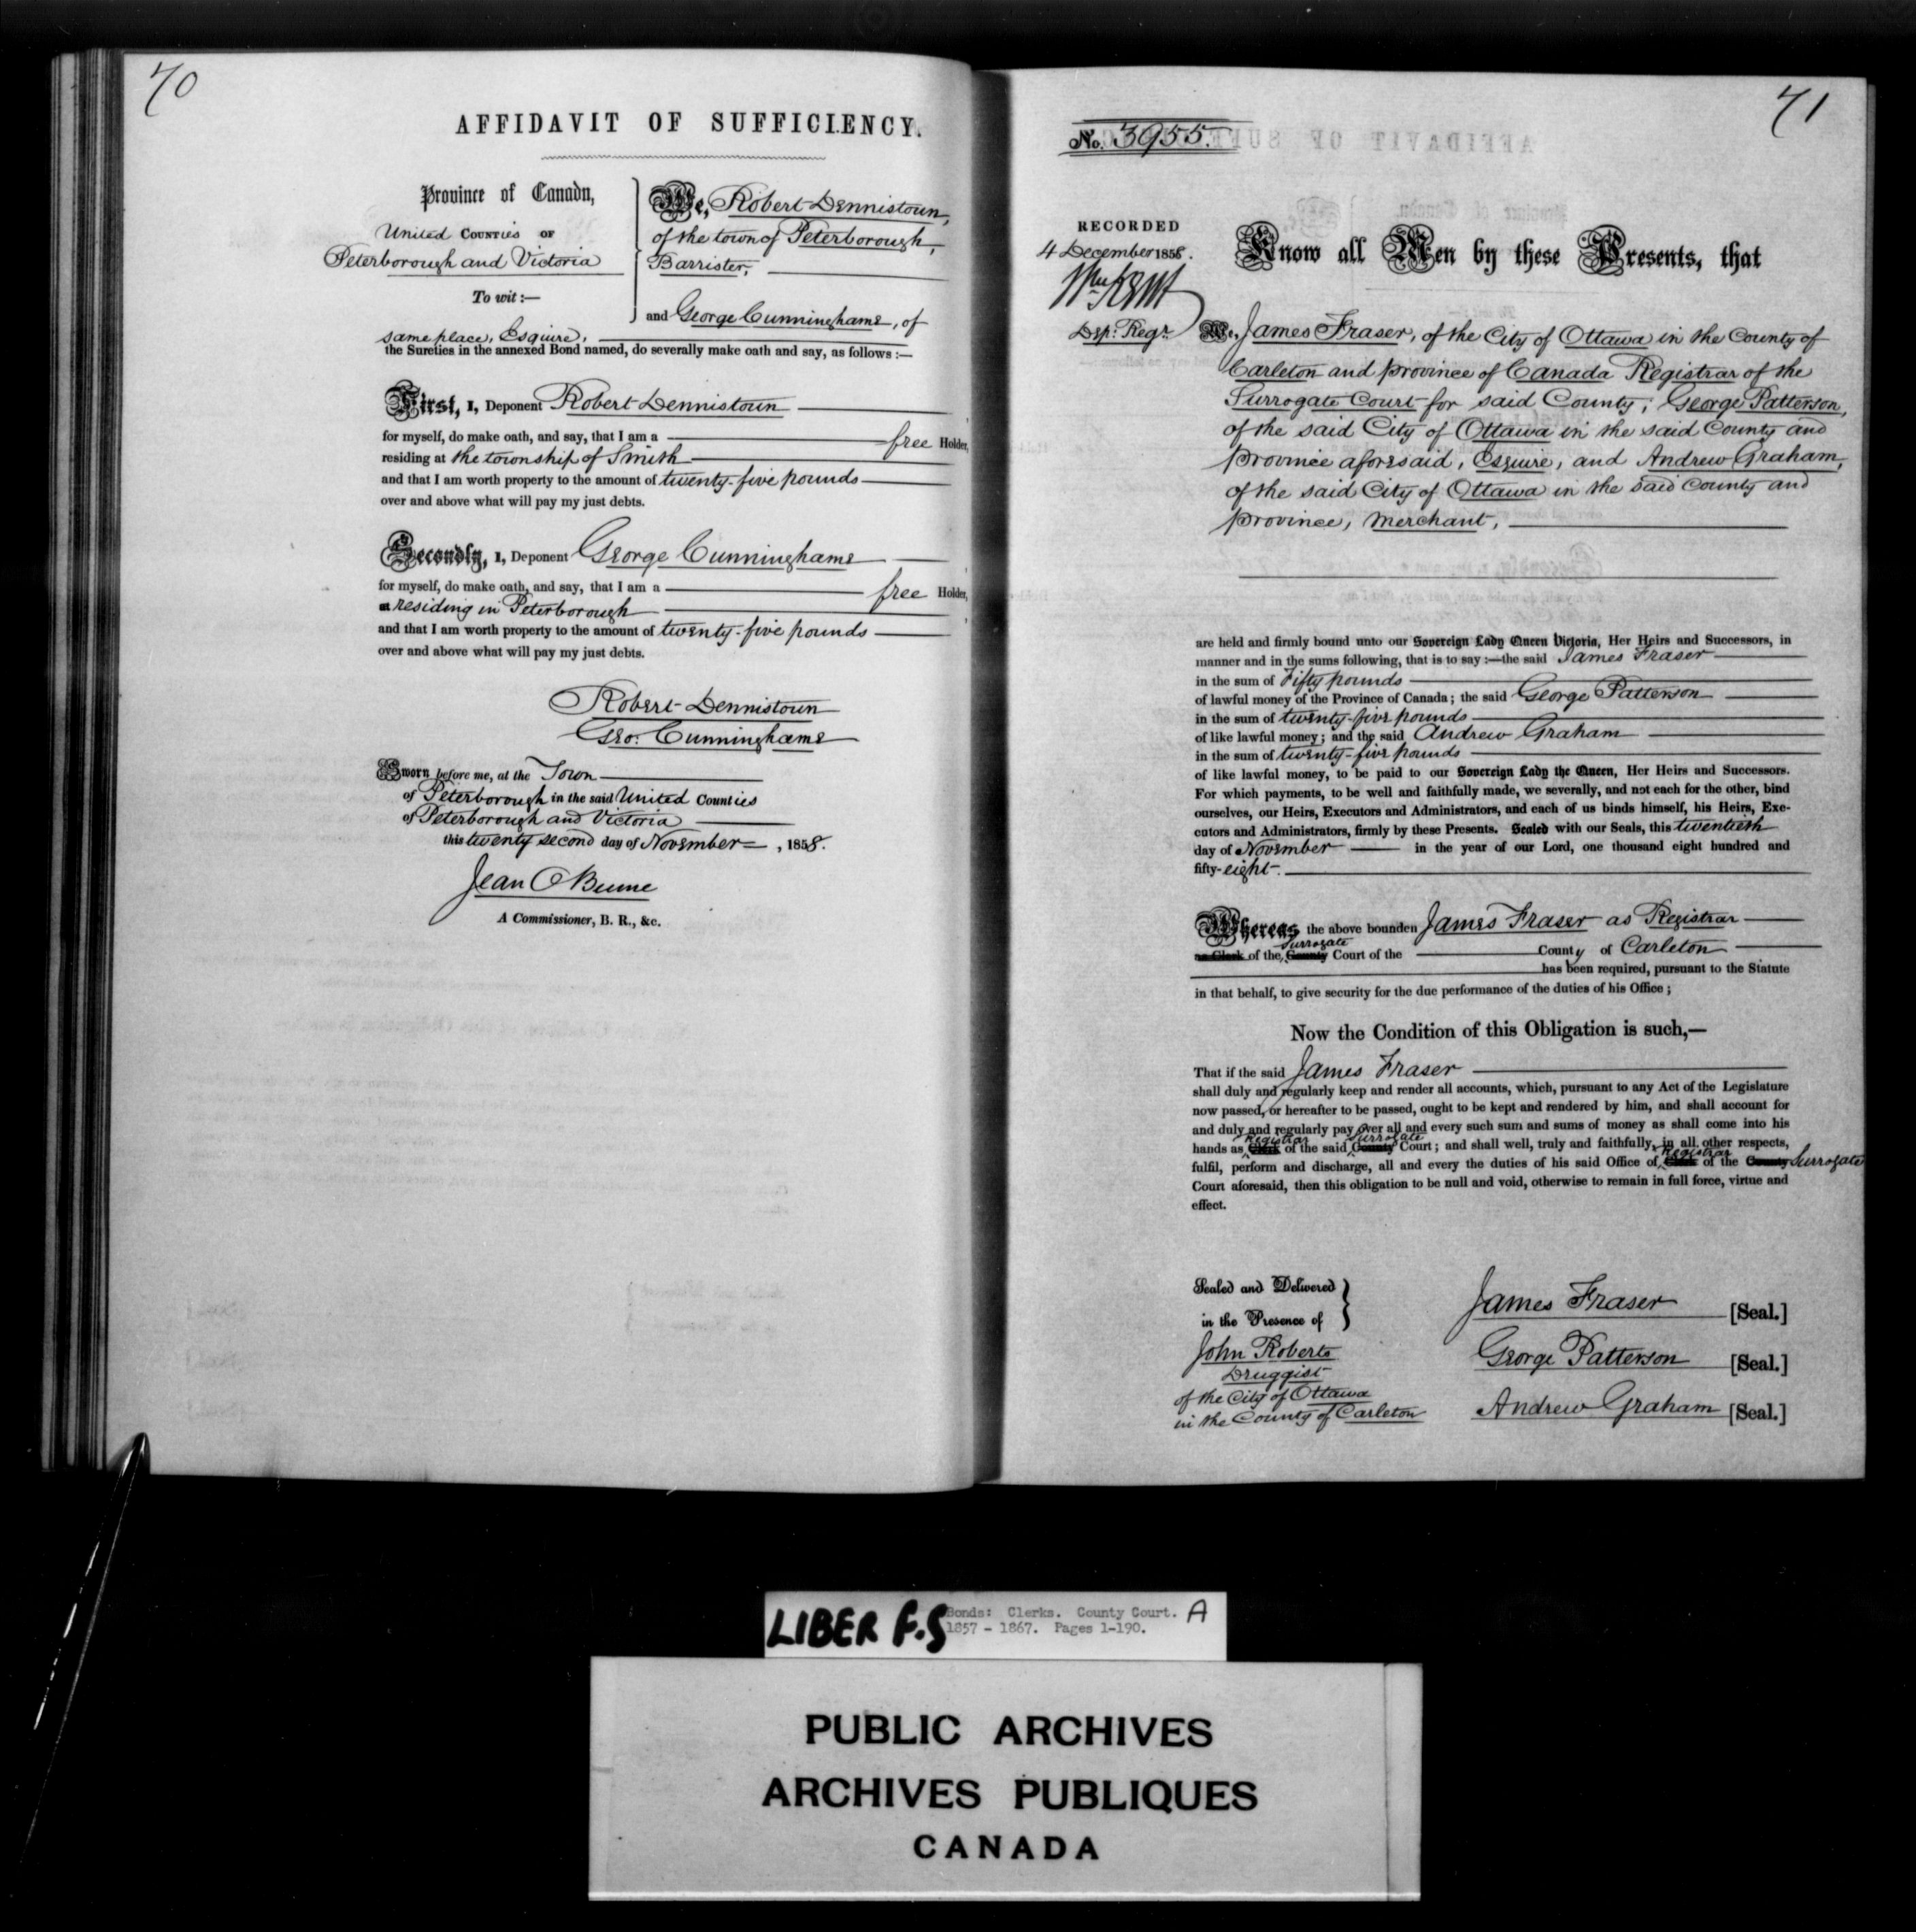 70
AFFIDAVIT OF SUFFICIENCY.
Province of Canada,
United Counties of
Peterborough and Victoria
To wit:—
We, Robert Dennistoun,
of the town of Peterborough,
Barrister,
and George Cunninghame, of
same place, Esquire,
the Sureties in the annexed Bond named, do severally make oath and say, as follows:—
First, I, Deponent Robert Dennistoun
for myself, do make oath, and say, that I am a free Holder,
residing at the township of Smith
and that I am worth property to the amount of twenty-five pounds
over and above what will pay my just debts.
Secondly, I, Deponent George Cunninghame
for myself, do make oath, and say, that I am a free Holder,
at residing in Peterborough
and that I am worth property to the amount of twenty-five pounds
over and above what will pay my just debts.
Robert Dennistoun
Geo: Cunninghame
Sworn before me, at the Town
of Peterborough in the said United Counties
of Peterborough and Victoria
this twenty second day of November, 1858.
Jean C
A Commissioner, B. R., &c.
71
No. 3955.
RECORDED
4 December 1858.
Wm Kent
Dep: Regr.
Know all Men by these Presents, that
We, James Fraser, of the City of Ottawa in the County of
Carleton and province of Canada Registrar of the
Surrogate Court for said County; George Patterson,
of the said City of Ottawa in the said County and
province aforesaid, Esquire, and Andrew Graham,
of the said City of Ottawa in the said County and
province, merchant,
are held and firmly bound unto our Sovereign Lady Queen Victoria, Her Heirs and Successors, in
manner and in the sums following, that is to say:—the said James Fraser
in the sum of Fifty pounds
of lawful money of the Province of Canada; the said George Patterson
in the sum of twenty-five pounds
of like lawful money; and the said Andrew Graham
in the sum of twenty-five pounds
of like lawful money, to be paid to our Sovereign Lady the Queen, Her Heirs and Successors.
For which payments, to be well and faithfully made, we severally, and not each for the other, bind
ourselves, our Heirs, Executors and Administrators, and each of us binds himself, his Heirs, Exe-
cutors and Administrators, firmly by these Presents. Sealed with our Seals, this twentieth
day of November in the year of our Lord, one thousand eight hundred and
fifty-eight.
Whereas the above bounden James Fraser as Registrar
as Clerk of the Surrogate County Court of the County of Carleton
has been required, pursuant to the Statute
in that behalf, to give security for the due performance of the duties of his Office;
Now the Condition of this Obligation is such,—
That if the said James Fraser
shall duly and regularly keep and render all accounts, which, pursuant to any Act of the Legislature
now passed, or hereafter to be passed, ought to be kept and rendered by him, and shall account for
and duly and regularly pay over all and every such sum and sums of money as shall come into his
hands as Registrar Clerk of the said Surrogate County Court; and shall well, truly and faithfully, in all other respects,
fulfil, perform and discharge, all and every the duties of his said Office of Registrar Clerk of the County Surrogate
Court aforesaid, then this obligation to be null and void, otherwise to remain in full force, virtue and
effect.
Sealed and Delivered
in the Presence of
John Roberts
Druggist
of the City of Ottawa
in the County of Carleton
James Fraser [Seal.]
George Patterson [Seal.]
Andrew Graham [Seal.]
LIBER F.S
Bonds: Clerks. County Court. A
1857 - 1867. Pages 1-190.
PUBLIC ARCHIVES
ARCHIVES PUBLIQUES
CANADA